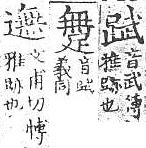 䟼音武博雅跡也
音䟼義同
文甫切博雅跡也